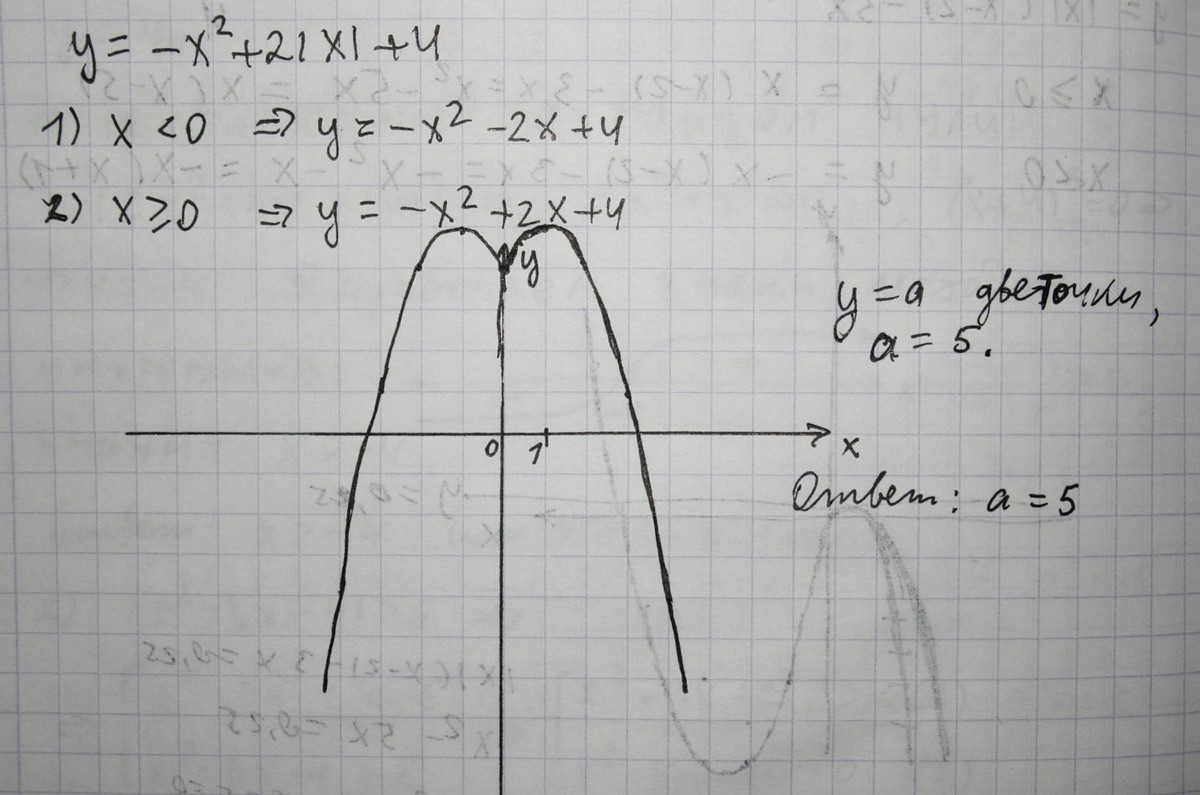 y = -x² + 2|x| + 4
1) x < 0 ⇒ y = -x² - 2x + 4
2) x ≥ 0 ⇒ y = -x² + 2x + 4
y
y = a две точки,
a = 5.
0 1 x
Ответ: a = 5